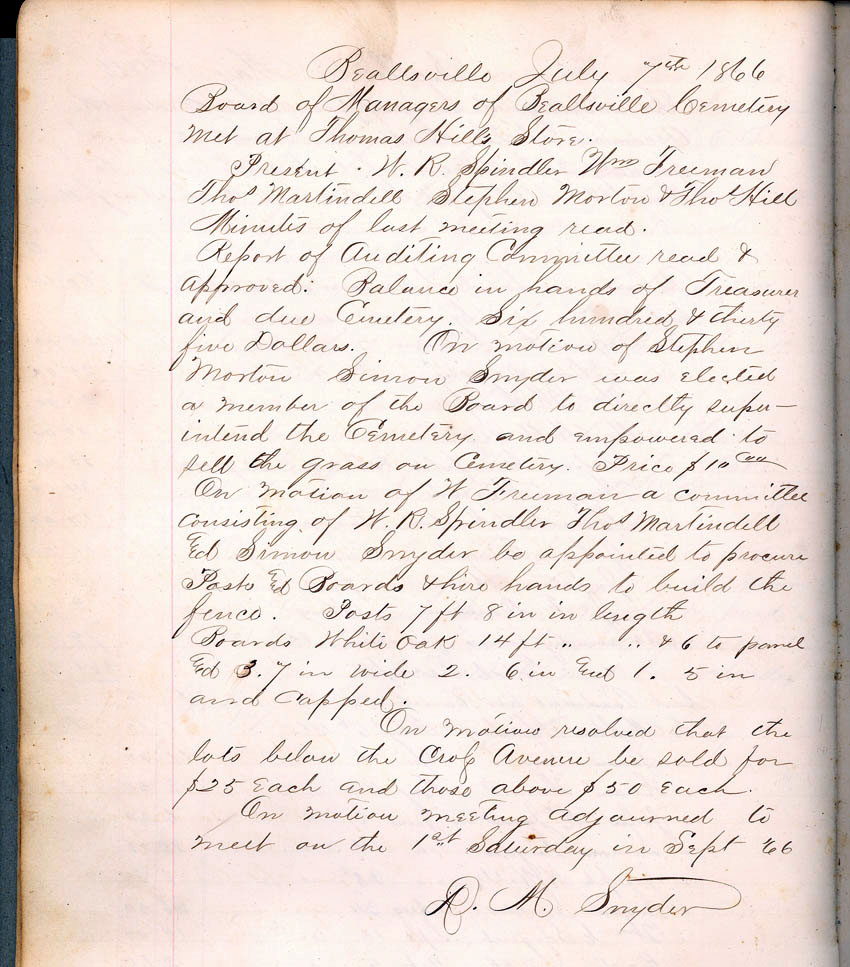 Beallsville July 7th 1866
Board of Managers of Beallsville Cemetery
met at Thomas Hills Store.
Present. W. R. Spindler Wm Freeman
Thos Martindell Stephen Morton & Thos Hill
Minutes of last meeting read.
Report of Auditing Committee read &
approved: Balance in hands of Treasurer
and due Cemetery. Six hundred & thirty
five Dollars. On motion of Stephen
Morton Simon Snyder was elected
a member of the Board to directly super-
intend the Cemetery and empowered to
sell the grass on Cemetery. Price $10 00
On motion of W Freeman a committee
consisting of W. R. Spindler Thos Martindell
Ed Simon Snyder be appointed to procure
Posts Ed Boards & hire hands to build the
fence. Posts 7 ft 8 in in length
Boards White Oak 14 ft " " & 6 to panel
Ed 3. 7 in wide 2. 6 in End 1. 5 in
and capped.
On motion resolved that the
lots below the Avenue be sold for
$25 Each and those above $50 each.
On motion meeting adjourned to
meet on the 1st Saturday in Sept 66
R. M. Snyder